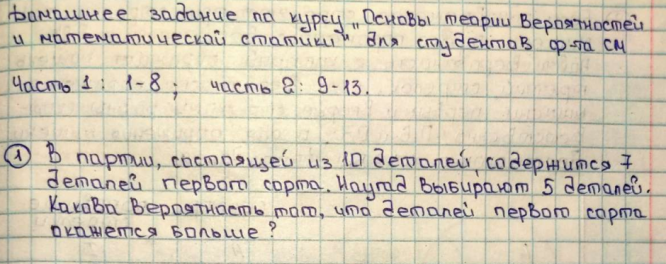 Домашнее задание по курсу „Основы теории вероятностей
и математической статики" для студентов ф-та СМ
Часть 1: 1-8; часть 2: 9-13.
① В партии, состоящей из 10 деталей, содержится 7
деталей первого сорта. Наугад выбирают 5 деталей.
Какова вероятность того, что деталей первого сорта
окажется больше?